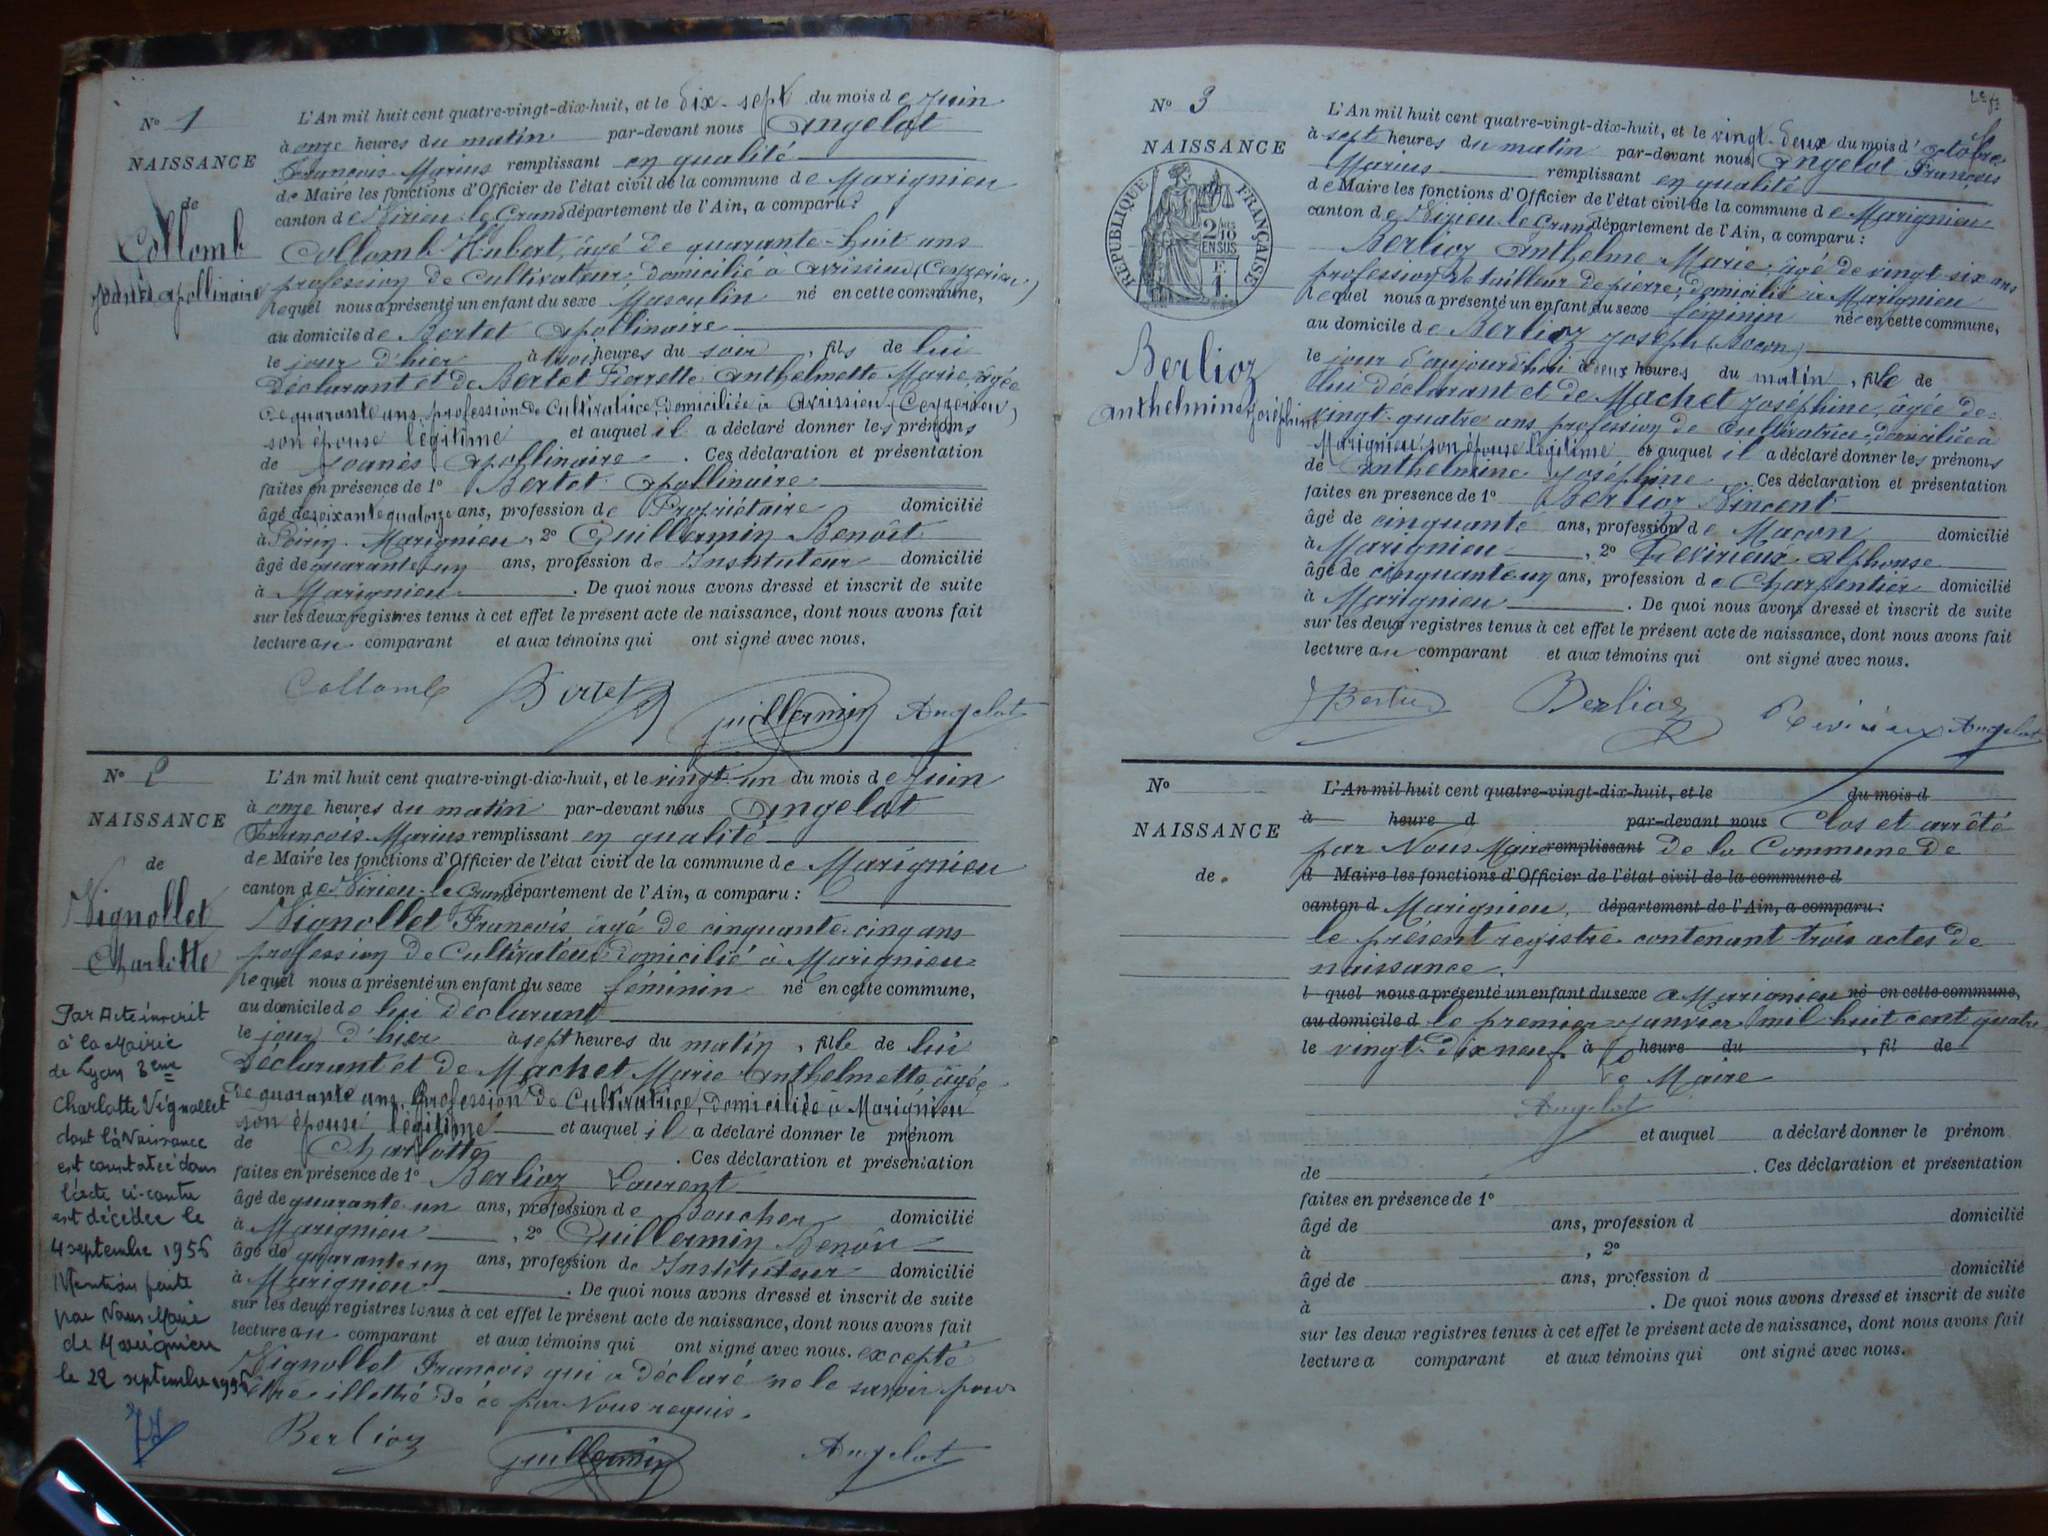 N° 1
NAISSANCE
de
Collomb
Joanès Apollinaire
L'An mil huit cent quatre-vingt-dix-huit, et le dix-sept du mois de Juin
à onze heures du matin par-devant nous Angelot
François Marius remplissant en qualité
de Maire les fonctions d'Officier de l'état civil de la commune de Marignieu
canton de Virieu-le-Grand département de l'Ain, a comparu :
Collomb Hubert, âgé de quarante-huit ans
profession de Cultivateur, domicilié à Avrissieu (Ceyzerieu)
lequel nous a présenté un enfant du sexe Masculin né en cette commune,
au domicile de Bertet Apollinaire
le jour d'hier à heures du soir, fils de lui
Déclarant et de Bertet Pierrette Anthelmette Marie, âgée
de quarante ans, profession de Cultivatrice, domiciliée à Avrissieu (Ceyzerieu)
son épouse légitime et auquel il a déclaré donner les prénoms
de Joanès Apollinaire. Ces déclaration et présentation
faites en présence de 1° Bertet Apollinaire
âgé de soixante quatorze ans, profession de Propriétaire domicilié
à Poirin-Marignieu, 2° Guillermin Benoît
âgé de quarante un ans, profession de Instituteur domicilié
à Marignieu. De quoi nous avons dressé et inscrit de suite
sur les deux registres tenus à cet effet le présent acte de naissance, dont nous avons fait
lecture au comparant et aux témoins qui ont signé avec nous.
Collomb Bertet Guillermin Angelot
N° 2
NAISSANCE
de
Vignollet
Charlotte
L'An mil huit cent quatre-vingt-dix-huit, et le vingt-un du mois de Juin
à onze heures du matin par-devant nous Angelot
François Marius remplissant en qualité
de Maire les fonctions d'Officier de l'état civil de la commune de Marignieu
canton de Virieu-le-Grand département de l'Ain, a comparu :
Vignollet François âgé de cinquante-cinq ans
profession de Cultivateur domicilié à Marignieu
lequel nous a présenté un enfant du sexe féminin né en cette commune,
au domicile de lui déclarant
le jour d'hier à sept heures du matin, fille de lui
Déclarant et de Machet Marie Anthelmette âgée
de quarante ans, profession de Cultivatrice, domiciliée à Marignieu
son épouse légitime et auquel il a déclaré donner le prénom
de Charlotte. Ces déclaration et présentation
faites en présence de 1° Berlioz Laurent
âgé de quarante un ans, profession de Boucher domicilié
à Marignieu, 2° Guillermin Benoît
âgé de quarante un ans, profession de Instituteur domicilié
à Marignieu. De quoi nous avons dressé et inscrit de suite
sur les deux registres tenus à cet effet le présent acte de naissance, dont nous avons fait
lecture au comparant et aux témoins qui ont signé avec nous. excepté
Vignollet François qui a déclaré ne le savoir pour
être illettré de ce par Nous requis.
Berlioz Guillermin Angelot
Par Acte inscrit
à la Mairie
de Lyon 3eme
Charlotte Vignollet
dont la Naissance
est constatée dans
l'acte ci-contre
est décédée le
4 septembre 1956
Mention faite
par Nous Maire
de Marignieu
le 22 septembre 1956
N° 3
NAISSANCE
RÉPUBLIQUE FRANÇAISE
2/10 EN SUS
Berlioz
Anthelmine Joséphine
L'An mil huit cent quatre-vingt-dix-huit, et le vingt-deux du mois d'octobre
à sept heures du matin par-devant nous Angelot François
Marius remplissant en qualité
de Maire les fonctions d'Officier de l'état civil de la commune de Marignieu
canton de Virieu-le-Grand département de l'Ain, a comparu :
Berlioz Anthelme Marie, âgé de vingt-six ans
profession de tailleur de pierre, domicilié à Marignieu
lequel nous a présenté un enfant du sexe féminin née en cette commune,
au domicile de Berlioz Joseph
le jour d'aujourd'hui à deux heures du matin, fille de
lui déclarant et de Machet Joséphine, âgée de
vingt-quatre ans, profession de Cultivatrice, domiciliée à
Marignieu, son épouse légitime et auquel il a déclaré donner les prénoms
de Anthelmine Joséphine. Ces déclaration et présentation
faites en présence de 1° Berlioz Vincent
âgé de cinquante ans, profession de Maçon domicilié
à Marignieu, 2° Revirieux Alphonse
âgé de cinquante un ans, profession de Charpentier domicilié
à Marignieu. De quoi nous avons dressé et inscrit de suite
sur les deux registres tenus à cet effet le présent acte de naissance, dont nous avons fait
lecture au comparant et aux témoins qui ont signé avec nous.
Berlioz Berlioz Revirieux Angelot
N°
NAISSANCE
de
L'An mil huit cent quatre-vingt-dix-huit, et le du mois d
à heure d par-devant nous Clos et arrêté
par Nous Maire remplissant de la Commune de
d Maire les fonctions d'Officier de l'état civil de la commune d
canton d Marignieu, département de l'Ain, a comparu :
le présent registre contenant trois actes de
naissance.
l quel nous a présenté un enfant du sexe A Marignieu né en cette commune,
au domicile d le premier Janvier mil huit cent quatre
le vingt-dix neuf à heure du , fil de
Le Maire
Angelot
et auquel a déclaré donner le prénom
de . Ces déclaration et présentation
faites en présence de 1°
âgé de ans, profession d domicilié
à , 2°
âgé de ans, profession d domicilié
à . De quoi nous avons dressé et inscrit de suite
sur les deux registres tenus à cet effet le présent acte de naissance, dont nous avons fait
lecture a comparant et aux témoins qui ont signé avec nous.